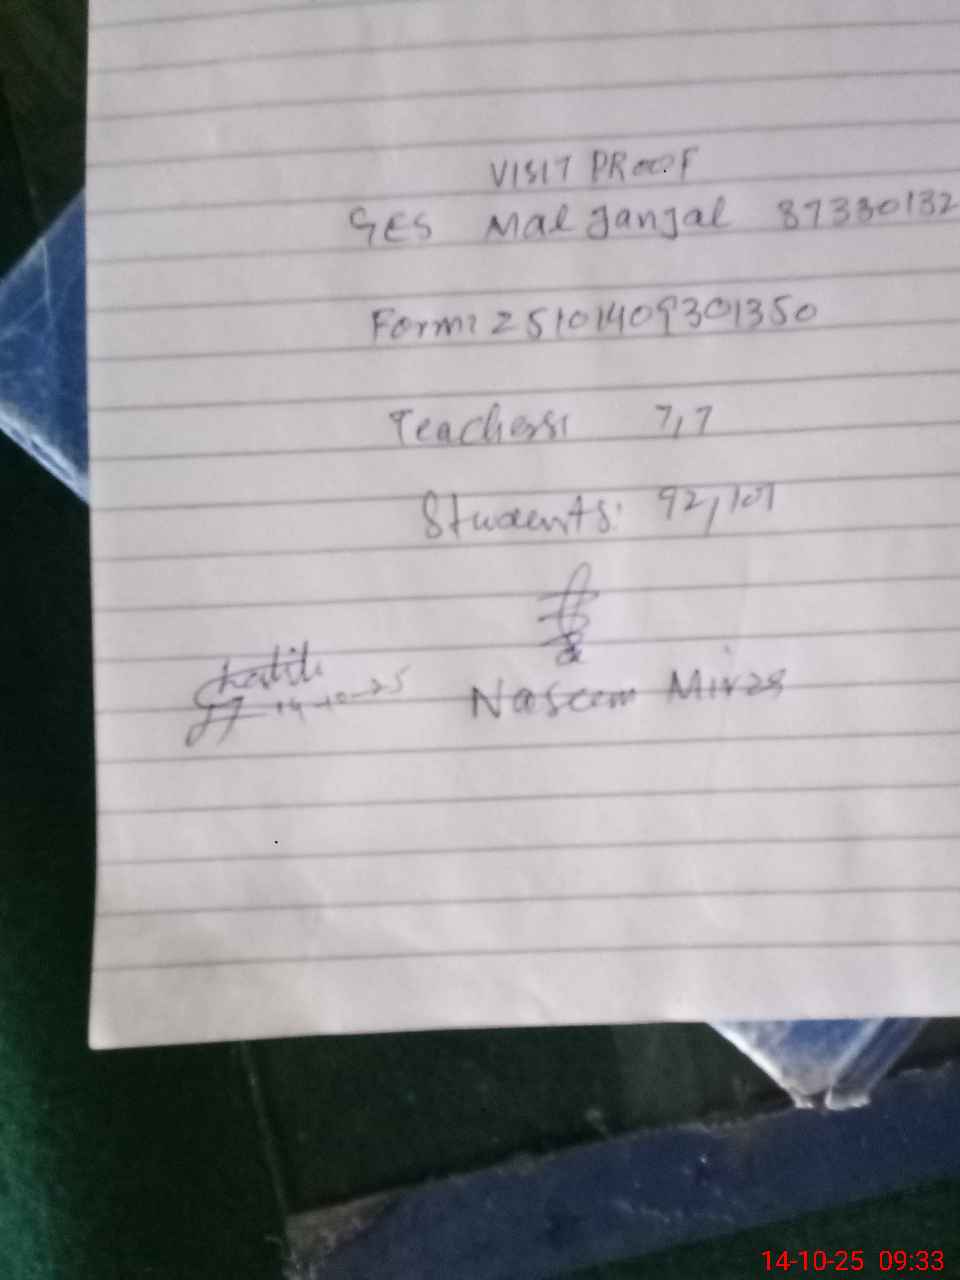 VISIT PROOF
GES Mal Jangal 87330132
Form: 25101409301350
Teachers: 7,7
Students: 92,107
14-10-25
Naseem Mirza
14-10-25 09:33